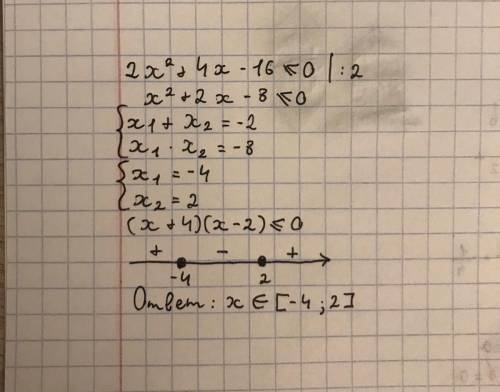 2x² + 4x - 16 ⩽ 0 | : 2
x² + 2x - 8 ⩽ 0
{ x₁ + x₂ = -2
x₁ · x₂ = -8
{ x₁ = -4
x₂ = 2
(x + 4)(x - 2) ⩽ 0
+ - +
-4 2
Ответ : x ∈ [-4 ; 2]